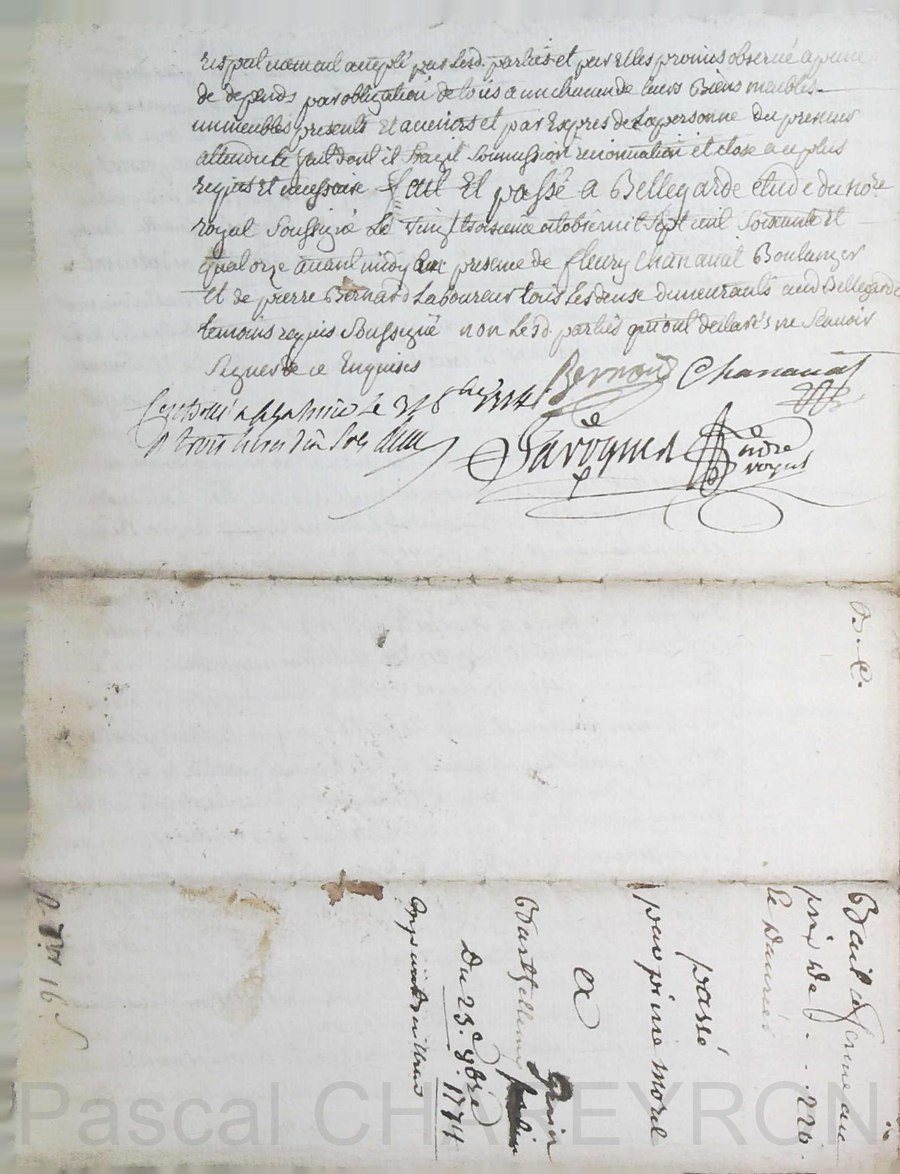 par lesd. parties et par elles promis observé a peine
de depends par obligation de tous a un chacun de leurs Biens meubles
immeubles presents Et avenirs et par Expres de la personne du premier
attendu le fait dont il Sagit Soumission renonciation et close a ce plus
requis et necessaire fait Et passé a Bellegarde etude du nore
royal Soussigné Le Vingt troisieme octobre mil Sept cent Soixante et
quatorze avant midy En presence de fleury Chanavat Boulanger
Et de pierre Bernard Laboureur tous Les deux demeurants aud Bellegarde
temoins requis Soussigné non Lesd parties qui ont declarés ne Scavoir
Signer de ce Enquises
Bernard Chanavat
Controllé a St galmier Le 8bre 1774
Javogues nore royal
B. C.
Bail a ferme au
prix de . . . 220.
passé
par pierre morel
a
Barthellemy
Du 23e 8bre 1774
Pascal CHAREYRON